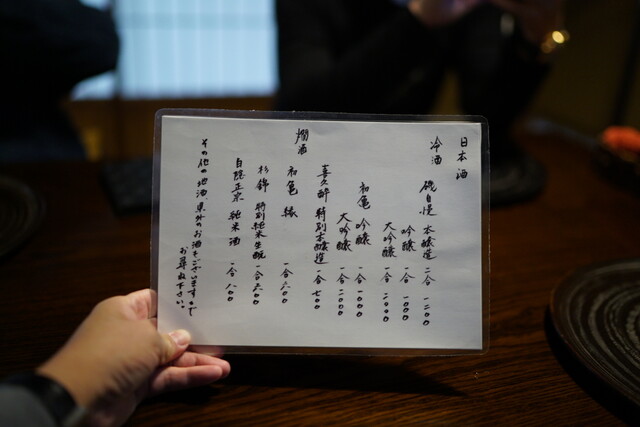 日本酒
冷酒
磯自慢 本醸造 二合 一二〇〇
吟醸 一合 一〇〇〇
大吟醸 一合 二〇〇〇
初亀 吟醸 一合 一〇〇〇
大吟醸 一合 二〇〇〇
喜久酔 特別本醸造 一合 七〇〇
燗酒
初亀 縁 一合 六〇〇
杉錦 特別純米生酛 一合 六〇〇
自隠正宗 純米酒 一合 八〇〇
その他の地酒、県外のお酒もございますので
お尋ね下さい。